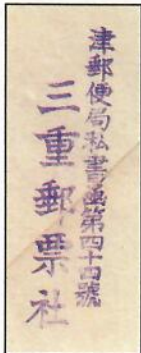 津郵便局私書凾第四十四號
三重郵票社